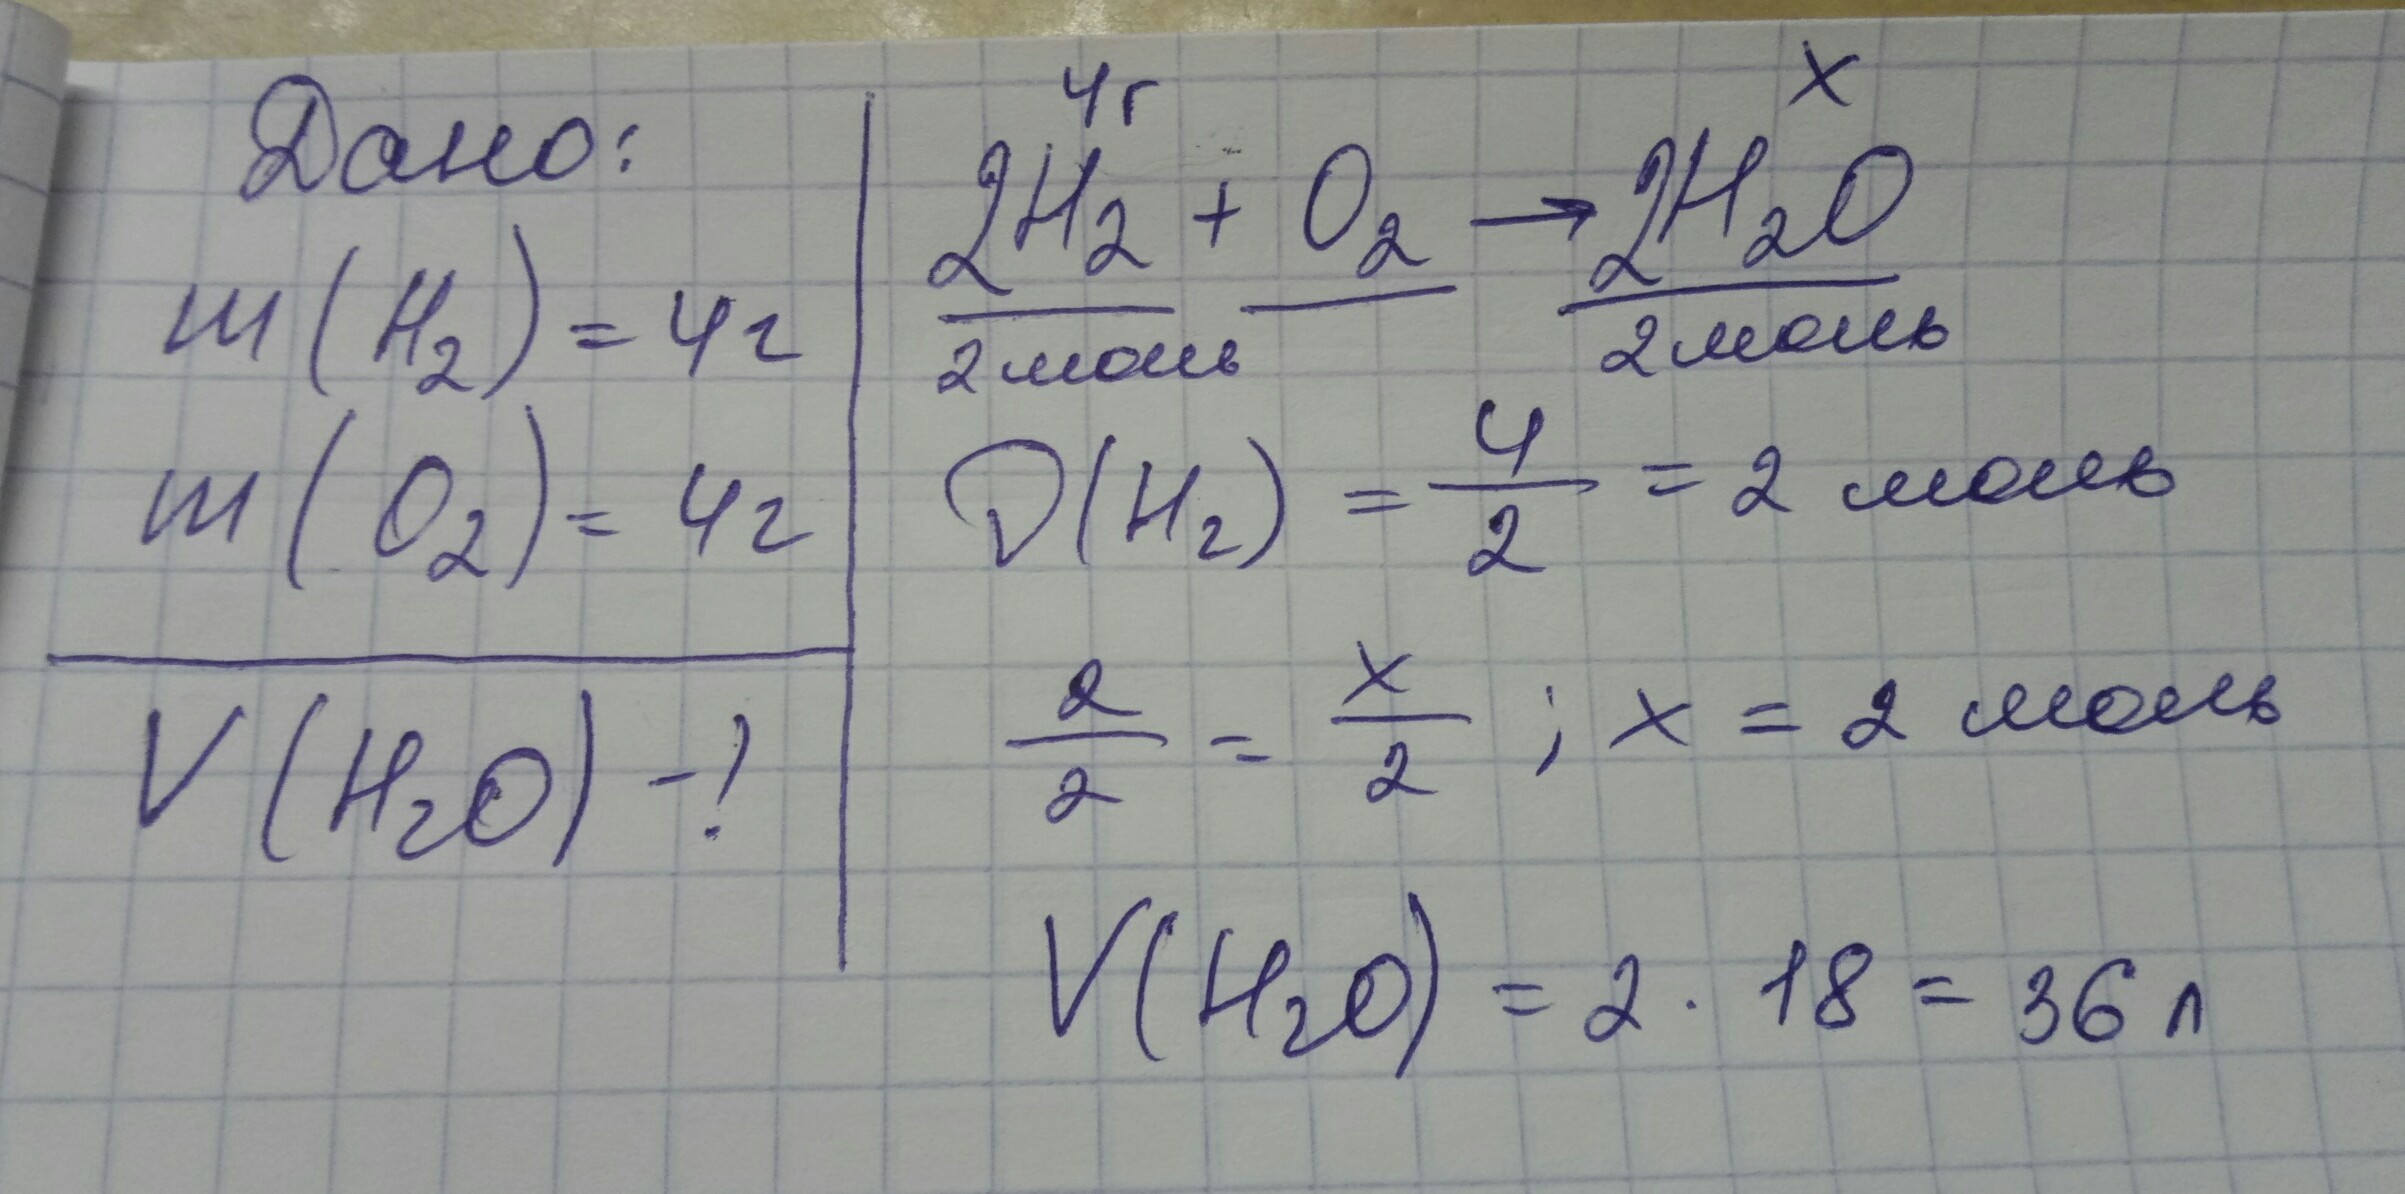 Дано:
m(H₂) = 4г
m(O₂) = 4г
V(H₂O) - ?
4г x
2H₂ + O₂ → 2H₂O
2моль 2моль
ν(H₂) = 4/2 = 2 моль
2/2 = x/2 ; x = 2 моль
V(H₂O) = 2 · 18 = 36 л